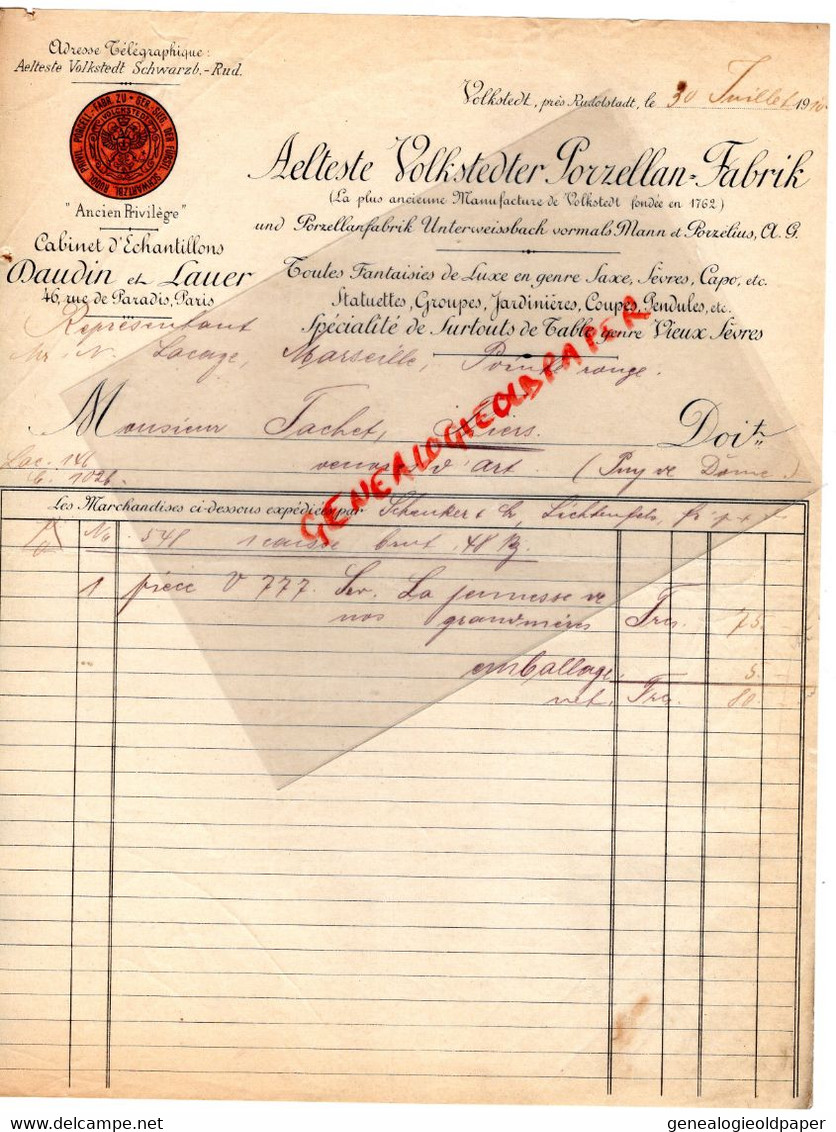 Adresse Télégraphique:
Aelteste Volkstedt Schwarzb.-Rud.
"Ancien Privilège"
Cabinet d'Echantillons
Daudin et Lauer
46, rue de Paradis, Paris
Volkstedt, près Rudolstadt, le 30 Juillet 1910
Aelteste Volkstedter Porzellan-Fabrik
(La plus ancienne Manufacture de Volkstedt fondée en 1762)
und Porzellanfabrik Unterweissbach vormals Mann et Porzelius, A.G.
Toutes Fantaisies de Luxe en genre Saxe, Sèvres, Capo, etc.
Statuettes, Groupes, Jardinières, Coupes, Pendules, etc.
Spécialité de Surtouts de Table genre Vieux Sèvres
Représentant
Mr. N. Lacage, Marseille, Pointe rouge.
Monsieur Tachet, Thiers. Doit
Lac. 146
1026
d'art (Puy de Dôme)
Les Marchandises ci-dessous expédiées par Schenker & Lichtenfels,
No. 548 1 caisse brut 48 Kg
1 pièce V 777. La jeunesse de
nos grandmères Frcs. 75
emballage 5.
net. Frcs. 80
GENEALOGIEOLDPAPER
delcampe.net
genealogieoldpaper